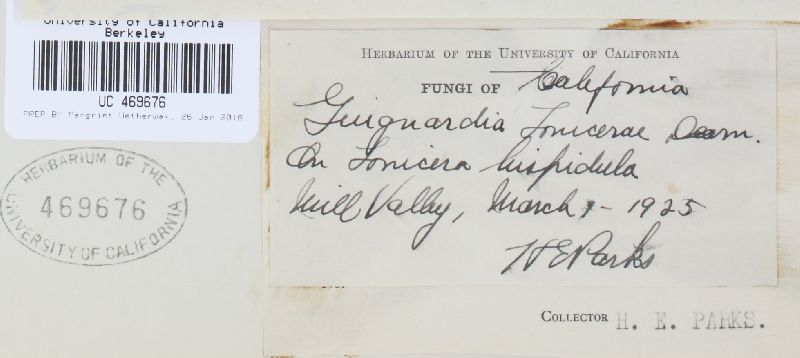 University of California
Berkeley
UC 469676
PREP BY Margriet Wetherwax, 26 Jan 2016
HERBARIUM OF THE
469676
UNIVERSITY OF CALIFORNIA
HERBARIUM OF THE UNIVERSITY OF CALIFORNIA
FUNGI OF California
Guignardia Lonicerae Dearn.
On Lonicera hispidula
Mill Valley, March 1 - 1925
H E Parks
COLLECTOR H. E. PARKS.